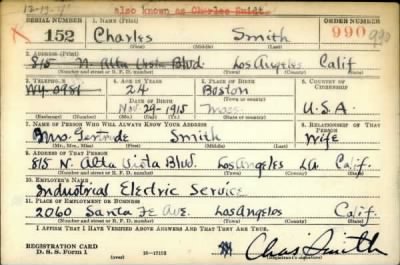 12-19-41 also known as Charles Smidt
SERIAL NUMBER 1. NAME (Print) ORDER NUMBER
K 152 Charles Smith 990
(First) (Middle) (Last)
2. ADDRESS (Print)
815 N. Alta Vista Blvd. Los Angeles Calif
(Number and street or R. F. D. number) (Town) (County) (State)
3. TELEPHONE 4. AGE IN YEARS 5. PLACE OF BIRTH 6. COUNTRY OF CITIZENSHIP
WY 0981 24 Boston
DATE OF BIRTH
Nov. 29-1915 Mass. U.S.A.
(Exchange) (Number) (Mo.) (Day) (Yr.) (State or country)
7. NAME OF PERSON WHO WILL ALWAYS KNOW YOUR ADDRESS 8. RELATIONSHIP OF THAT PERSON
Mrs. Gertrude Smith Wife
(Mr., Mrs., Miss) (First) (Middle) (Last)
9. ADDRESS OF THAT PERSON
815 N. Alta Vista Blvd. Los Angeles LA Calif.
(Number and street or R. F. D. number) (Town) (County) (State)
10. EMPLOYER'S NAME
Industrial Electric Service
11. PLACE OF EMPLOYMENT OR BUSINESS
2060 Santa Fe Ave. Los Angelos Calif.
(Number and street or R. F. D. number) (Town) (County) (State)
I AFFIRM THAT I HAVE VERIFIED ABOVE ANSWERS AND THAT THEY ARE TRUE.
REGISTRATION CARD
D. S. S. Form 1 (over) 16-17105 Chas Smith
(Registrant's signature)